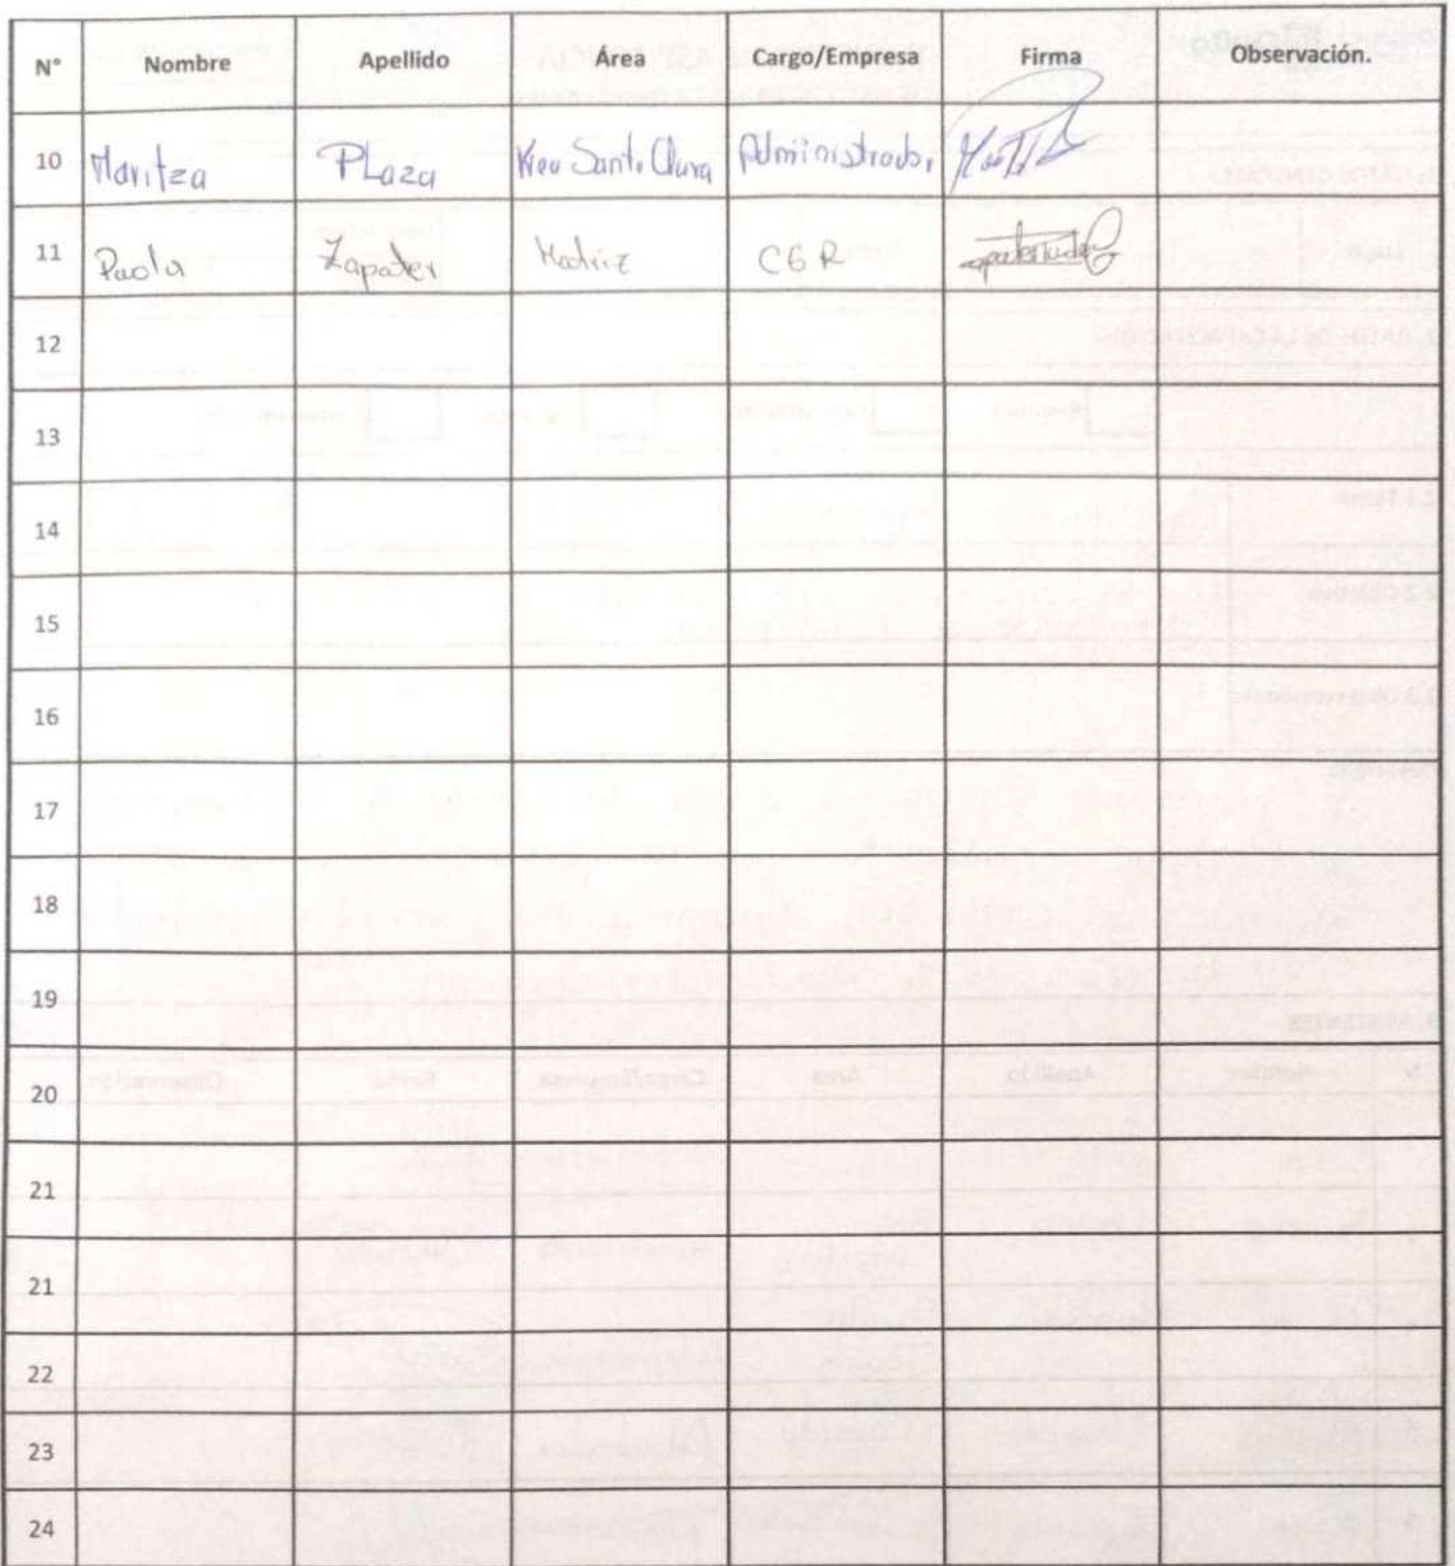 N° Nombre Apellido Área Cargo/Empresa Firma Observación.
10 Maritza PLaza Santa Clara Administrador
11 Paola Zapater Matriz CGR
12
13
14
15
16
17
18
19
20
21
21
22
23
24